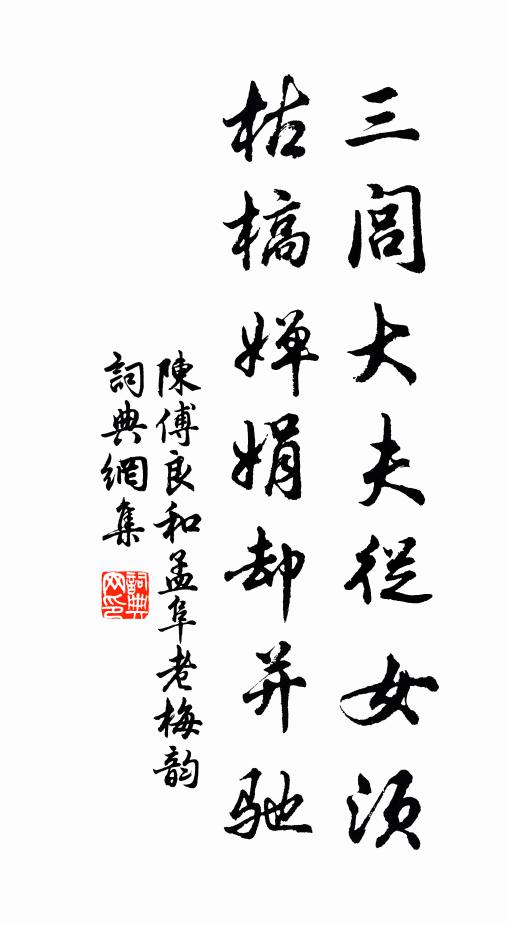 三閭大夫從女須
枯槁嬋娟却并馳
陳傅良和孟阜老梅韵
詞典網集
詞典網印